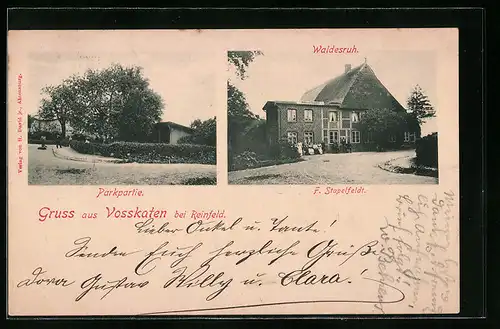 Waldesruh.
Parkpartie.
F. Stapelfeldt.
Gruss aus Vosskaten bei Reinfeld.
Lieber Onkel u. Tante!
Senden Euch herzliche Grüße
Dora Gustav Willy u. Clara!
Verlag von H. David jr., Ahrensburg.